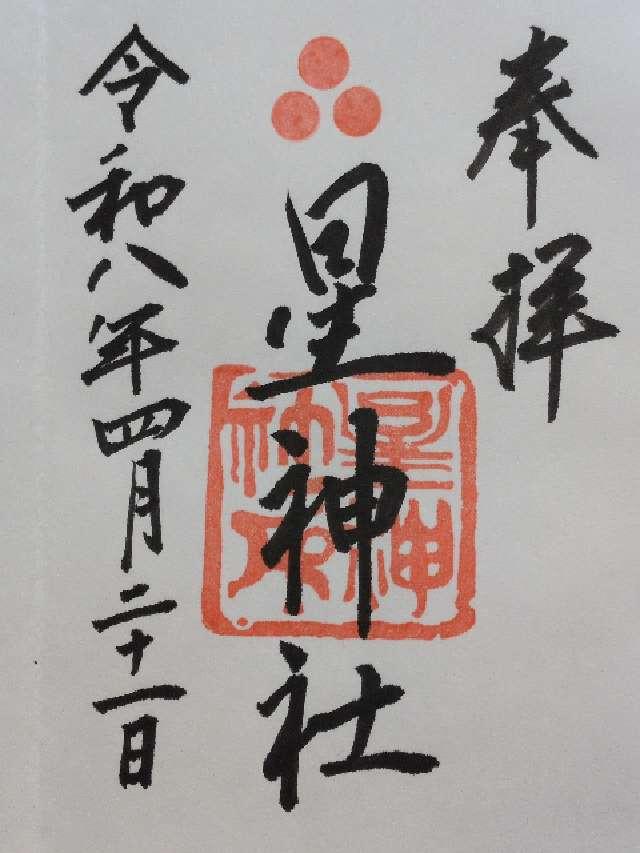 奉拝
星神社
星神社印
令和八年四月二十一日